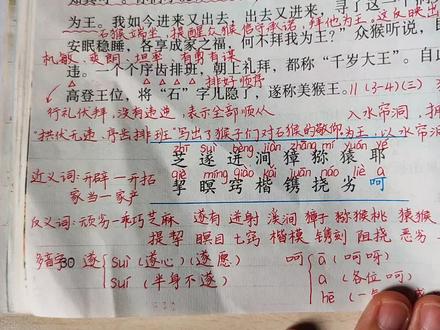 为王。我如今进来又出去，出去又进来，寻了这一个
石猴端坐，提醒众猴信守承诺，拜他为王。这反映出
安眠稳睡，各享成家之福，何不拜我为王？”众猴听说，
机敏 爽朗 坦率 有勇有谋
违。一个个序齿排班，朝上礼拜，都称“千岁大王”。自此
排好顺序
高登王位，将“石”字儿隐了，遂称美猴王。 11 (3-4)(三)
行礼伏拜，没有违逆，表示全部顺从 入水帘洞，拥
“拱伏无违，序齿排班”写出了猴子们对石猴的敬仰 为王，以水帘
zhī suì bèng jiàn zhāng mí yuán yē
芝 遂 迸 涧 獐 猕 猿 耶
qiè míng qiào kǎi juān náo liè a
挈 瞑 窍 楷 镌 挠 劣 呵
近义词：开辟—开拓
家当—家产
反义词：顽劣—乖巧 芝麻 遂有 迸射 溪涧 獐子 猕猴桃 猿猴
提挈 瞑目 七窍 楷模 镌刻 阻挠 恶劣
多音字 30 遂 suì（遂心）（遂愿） 呵 ā（呵呀）
suí（半身不遂） a（各位呵）
hē